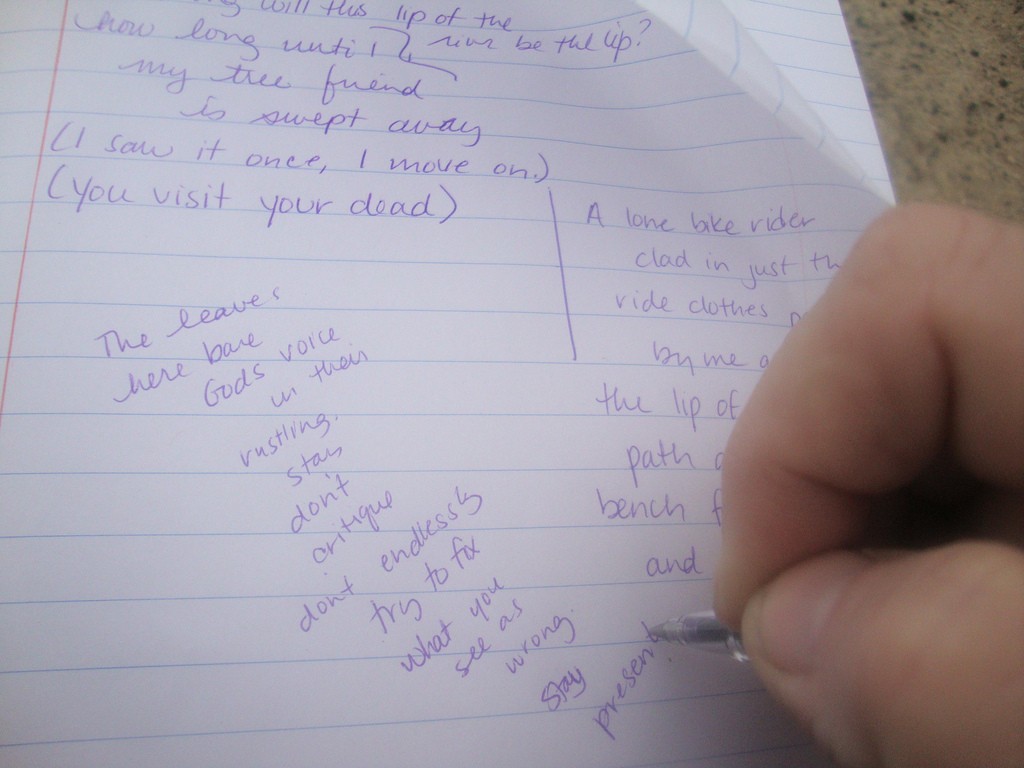 will this lip of the
how long until river be the lip?
my tree friend
is swept away
(I saw it once, I move on.)
(You visit your dead)
The leaves
here bare
Gods voice
in their
rustling.
stay
don't
critique
don't endlessly
try to fix
what you
see as
wrong.
Stay
present.
A lone bike rider
clad in just
ride clothes
by me
the lip of
path
bench
and